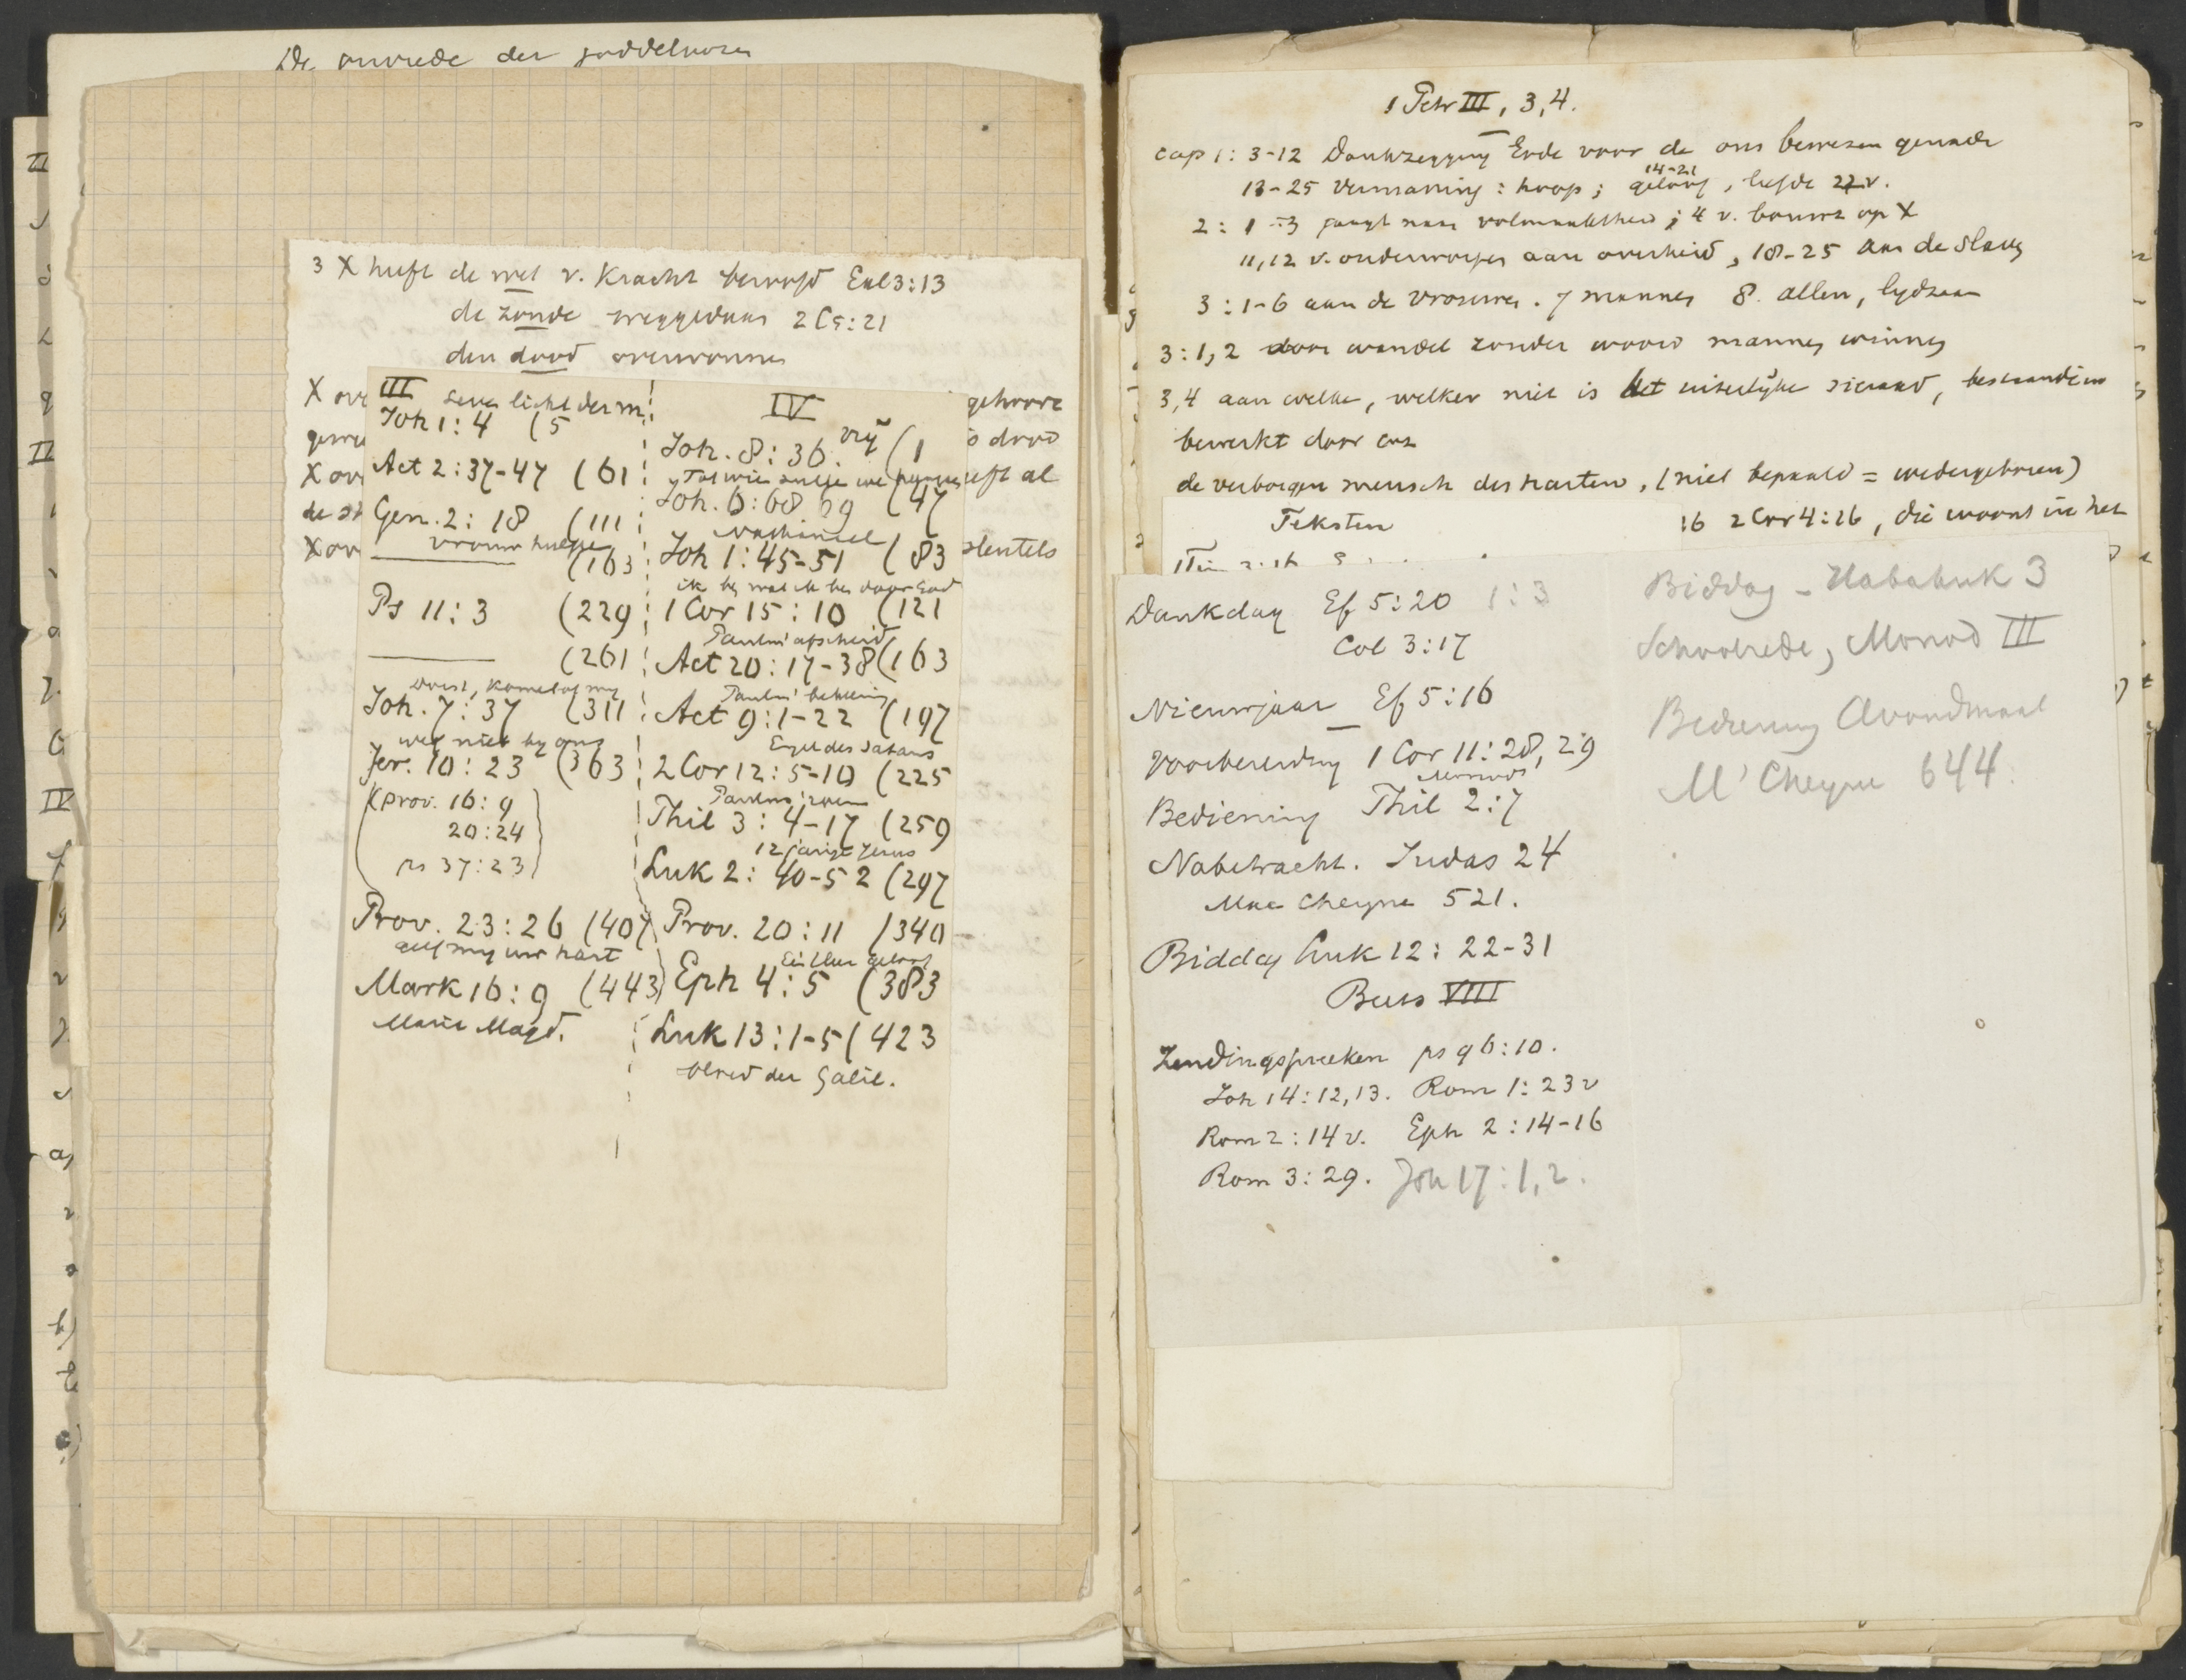 De onvrede der goddeloozen
3 X heeft de wet v. Kracht beroofd Gal 3:13
de zonde weggedaan 2 C 5:21
den dood overwonnen
X ove
gehoore
X ov
dood
eft al
X ov
sleutels
III
leven licht der m.
Joh 1:4 (5
Act 2:37-47 (61
Gen. 2:18 (111
vrouw hulpe
(163
Ps 11:3 (229
(261
dorst, kome tot my
Joh. 7:37 (311
weg niet by ons
Jer. 10:23 (363
(Prov. 16:9
20:24
ps 37:23)
Prov. 23:26 (407
geef my uw hart
Mark 16:9 (443)
Maria Magd.
IV
vrij
Joh. 8:36. (1
Tot wien zullen we
Joh. 6:68 69 (47
Nathanael
Joh 1:45-51 (83
ik ben wat ik ben door God
1 Cor 15:10 (121
Paulus' afscheid
Act 20:17-38 (163
Paulus' bekeering
Act 9:1-22 (197
Engel des Satans
2 Cor 12:5-10 (225
Paulus' roem
Phil 3:4-17 (259
12 jarige Jezus
Luk 2:40-52 (297
Prov. 20:11 (340
Eén Heer geloof
Eph 4:5 (383
Luk 13:1-5 (423
bloed der Galil.
1 Petr III, 3,4.
cap 1: 3-12 Dankzegging Gode voor de ons bewezen genade
14-21
13-25 Vermaning: hoop; geloof, liefde 22 v.
2: 1-3 jaagt naar volmaaktheid; 4 v. bouwt op X
11,12 v. onderworpen aan overheid, 18-25 aan de slaven
3: 1-6 aan de vrouwen. 7 mannen 8. allen, lydzaam
3:1,2 door wandel zonder woord mannen winnen
3,4 aan welke, welker niet is het uiterlijke sieraad, bestaande in
bewerkt door
de verborgen mensch des harten, (niet bepaald = wedergeboren)
:16 2 Cor 4:16, die woont in het
Teksten
Dankdag Ef 5:20 1:3
Col 3:17
Nieuwjaar Ef 5:16
Voorbereiding 1 Cor 11:28, 29
Monod
Bediening Phil 2:7
Nabetracht. Judas 24
Mac Cheyne 521.
Biddag Luk 12: 22-31
Beets VIII
Zendingspreeken ps 96:10.
Joh 14:12,13. Rom 1:23 v
Rom 2:14 v. Eph 2:14-16
Rom 3:29. Joh 17:1,2.
Biddag - Habakuk 3
Schoolrede, Monod III
Bediening Avondmaal
M'Cheyne 644.